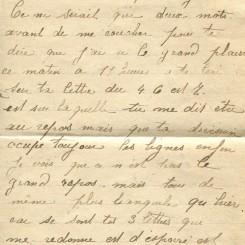 Ce ne serait que deux mots
avant de me coucher pour te
dire que j'ai u le grand plaisir
ce matin a 11 heures de
sur ta lettre du 4 6 et 7.
est sur laquelle tu me dit etre
au repos mais que ta division
occupe toujour les lignes enfin
je vois que ce n'est pas le
grand repos mais tous de
même plus tranquile qu'hier
car se sont tes 3 lettres que
me redonne est d'espoire est